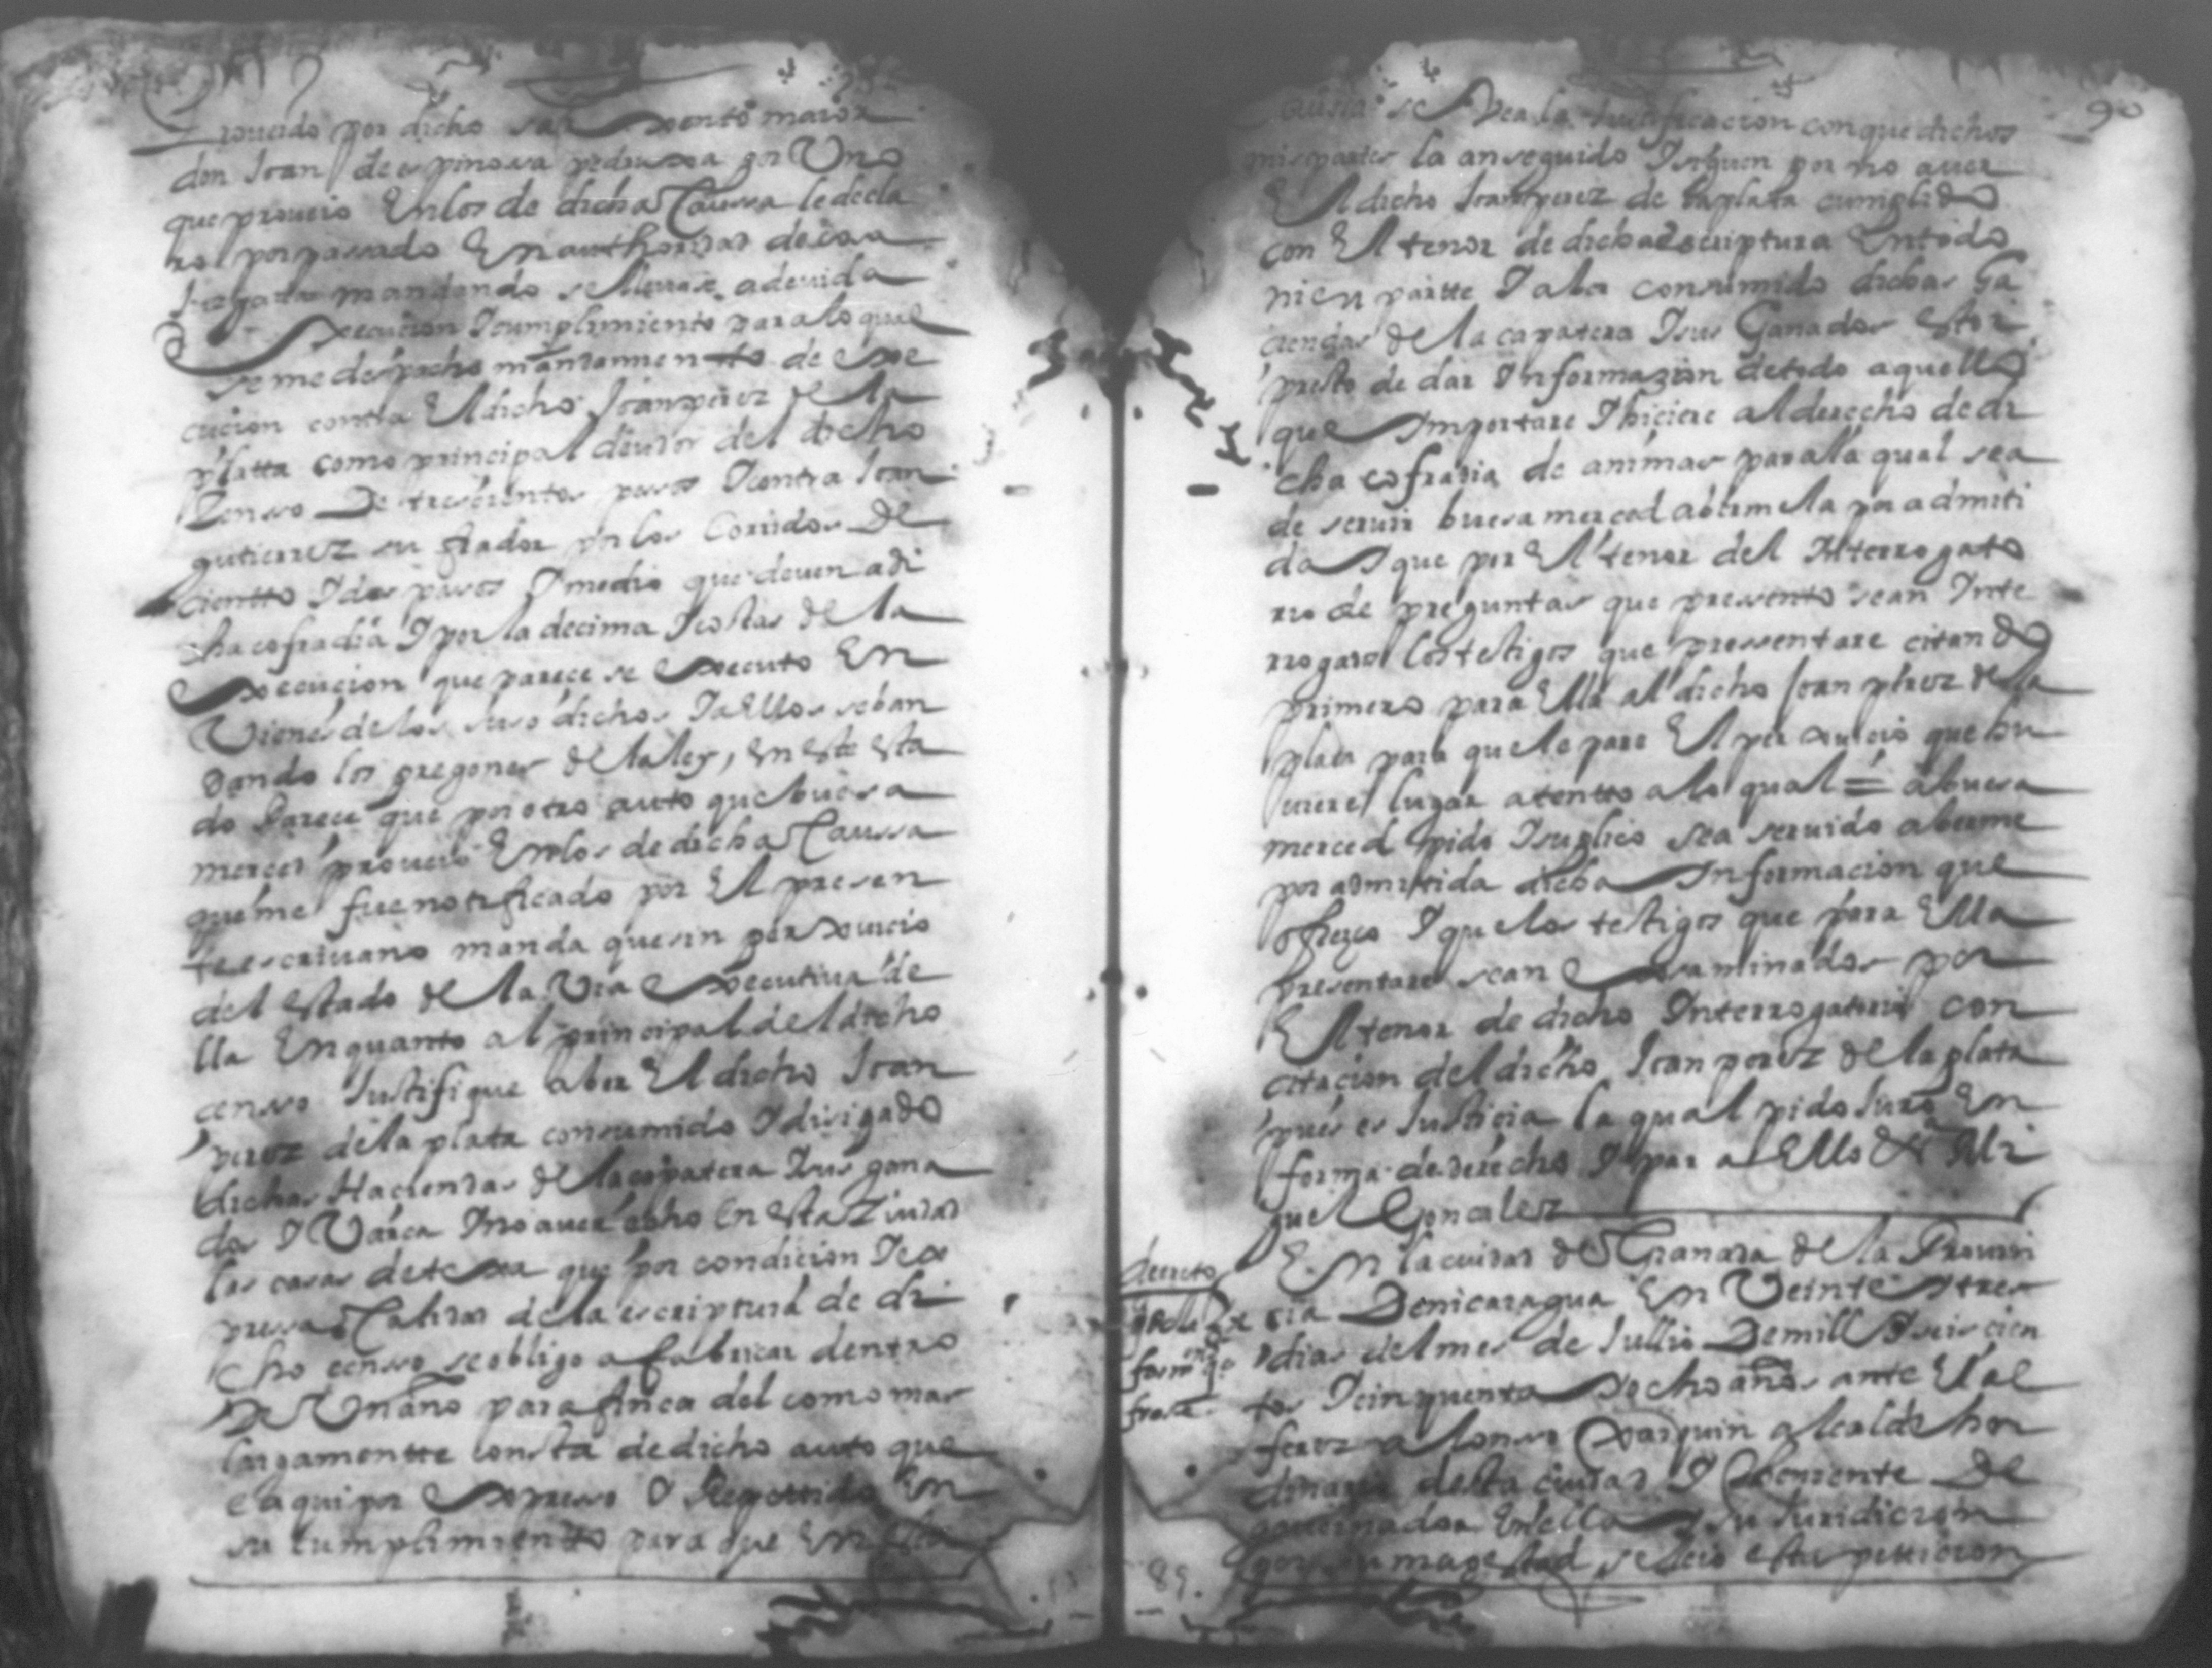 Proueido por dicho sarxento maior
don Joan de espinosa pedrossa por Uno
que proueio En los de dicha Caussa le decla
ro por passado En authoridad de cosa
Jusgada mandando se lleuase a deuida
Execucion I cumplimiento para lo qual
se me despacho mandamiento de exe
cucion contra El dicho Joan perez de la
platta como principal deudor del dicho
Zensso De tresientos pesos I contra Joan
gutierrez su fiador por los Corridos De
cientto I dos pesos I medio que deuen a di
cha cofradia I por la decima I costas de la
Execucion que parece se Executo En
Vienes de los suso dichos I a Ellos se ban
dando los pregones de la ley, en este esta
do Parece que por otro auto que buesa
merced proueio En los de dicha Caussa
que me fue notificado por El presen
te escriuano manda que sin perxuicio
del estado de la Via Executiua de
lla En quanto al principal del dicho
censso Justifique aber El dicho Joan
perez de la plata consumido I disigado
dichas Haciendas de la capatera I sus gana
do I Vaca I no auer echo En esta Ziudad
las casas de texa que por condicion I ex
pressa Calidad de la escriptura de di
cho censso se obligo a fabricar dentro
De Un año para finca del como mas
largamentte consta de dicho auto que
e aqui por Expresso I Repettido En
su cumplimiento para que En ella
90
se Vea la Justificacion con que dichos
mis partes la an seguido I siguen por no auer
El dicho Joan perez de la plata cumplido
con El tenor de dicha escriptura En todo
ni en partte I aber consumido dichas Ha
ciendas de la capatera I sus Ganados estoi
presto de dar Informazion de todo aquello
que Importare I hiciere al derecho de di
cha cofradia de animas para la qual sea
de seruir buesa merced abermela por admiti
da I que por El tenor del Interrogato
rio de preguntas que presento sean Inte
rrogados los testigos que pressentare citando
primero para Ella al dicho Joan perez de la
plata para que le pare El perxuicio que hu
uiere lugar atentto a lo qual = a buesa
merced pido I suplico sea seruido aberme
por admitida dicha Informacion que
ofrezco I que los testigos que para Ella
presentare sean Examinados por
El tenor de dicho Interrogatorio con
citacion del dicho Joan perez de la plata
pues es Justicia la qual pido Juro En
forma de derecho I para Ello &ª Mi
guel Gonçales
decreto
En la ciudad de Granada de la Prouin
cia De nicaragua En Veinte I tres
dias del mes de Jullio De mill I seis cien
tos I cinquenta I ocho años ante El al
ferez alonso Xarquin alcalde hor
dinario desta ciudad I theniente De
gouernador En ella I su Juridicion
por su magestad se leio esta petticion
89.